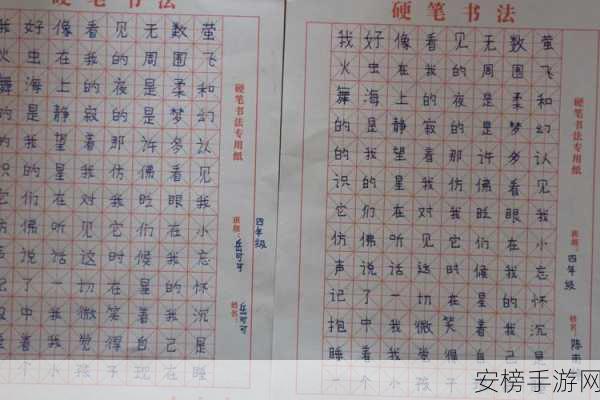 硬笔书法
我好像看见无数萤
火虫在我的周围飞
舞海上的夜是柔和
的是静寂的是梦幻
的我望着那许多认
识的星我仿佛看见
它们在对我眨眼我
仿佛听见它们在小
声说话这时候我忘
记了一切在星的怀
抱中我微笑着我沉
睡着我觉得自己是
个小孩子现在睡
硬笔书法专用纸
班级：四年级
姓名：岳可可
硬笔书法
我好像看见无数萤
火虫在我的周围飞
舞海上的夜是柔和
的是静寂的是梦幻
的我望着那许多认
识的星我仿佛看见
它们在对我眨眼我
仿佛听见它们在小
声说话这时候我忘
记了一切在星的怀
抱中我微笑着我沉
睡着我觉得自己是
一个小孩子
硬笔书法专用纸
班级：四年级
姓名：陈雨
安榜手游网